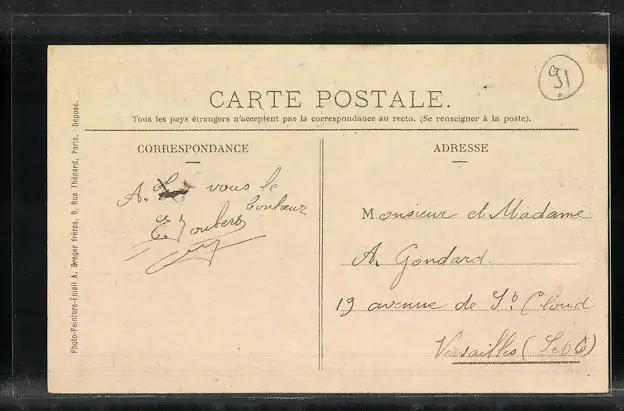 91
CARTE POSTALE.
Tous les pays étrangers n'acceptent pas la correspondance au recto. (Se renseigner à la poste).
CORRESPONDANCE
ADRESSE
A. vous le
bonheur
Monsieur et Madame
A. Gondard
19 avenue de St Cloud
Versailles (S et O)
Photo-Peinture-Email A. Breger frères, 9, Rue Thénard, Paris. Déposé.